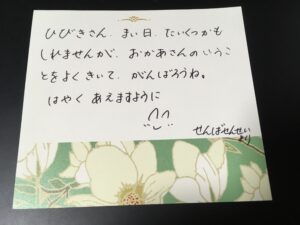 ひびきさん、まい日、たいくつかも
しれませんが、おかあさんのいうこ
とをよくきいて、がんばろうね。
はやく あえますように
せんばせんせい
より